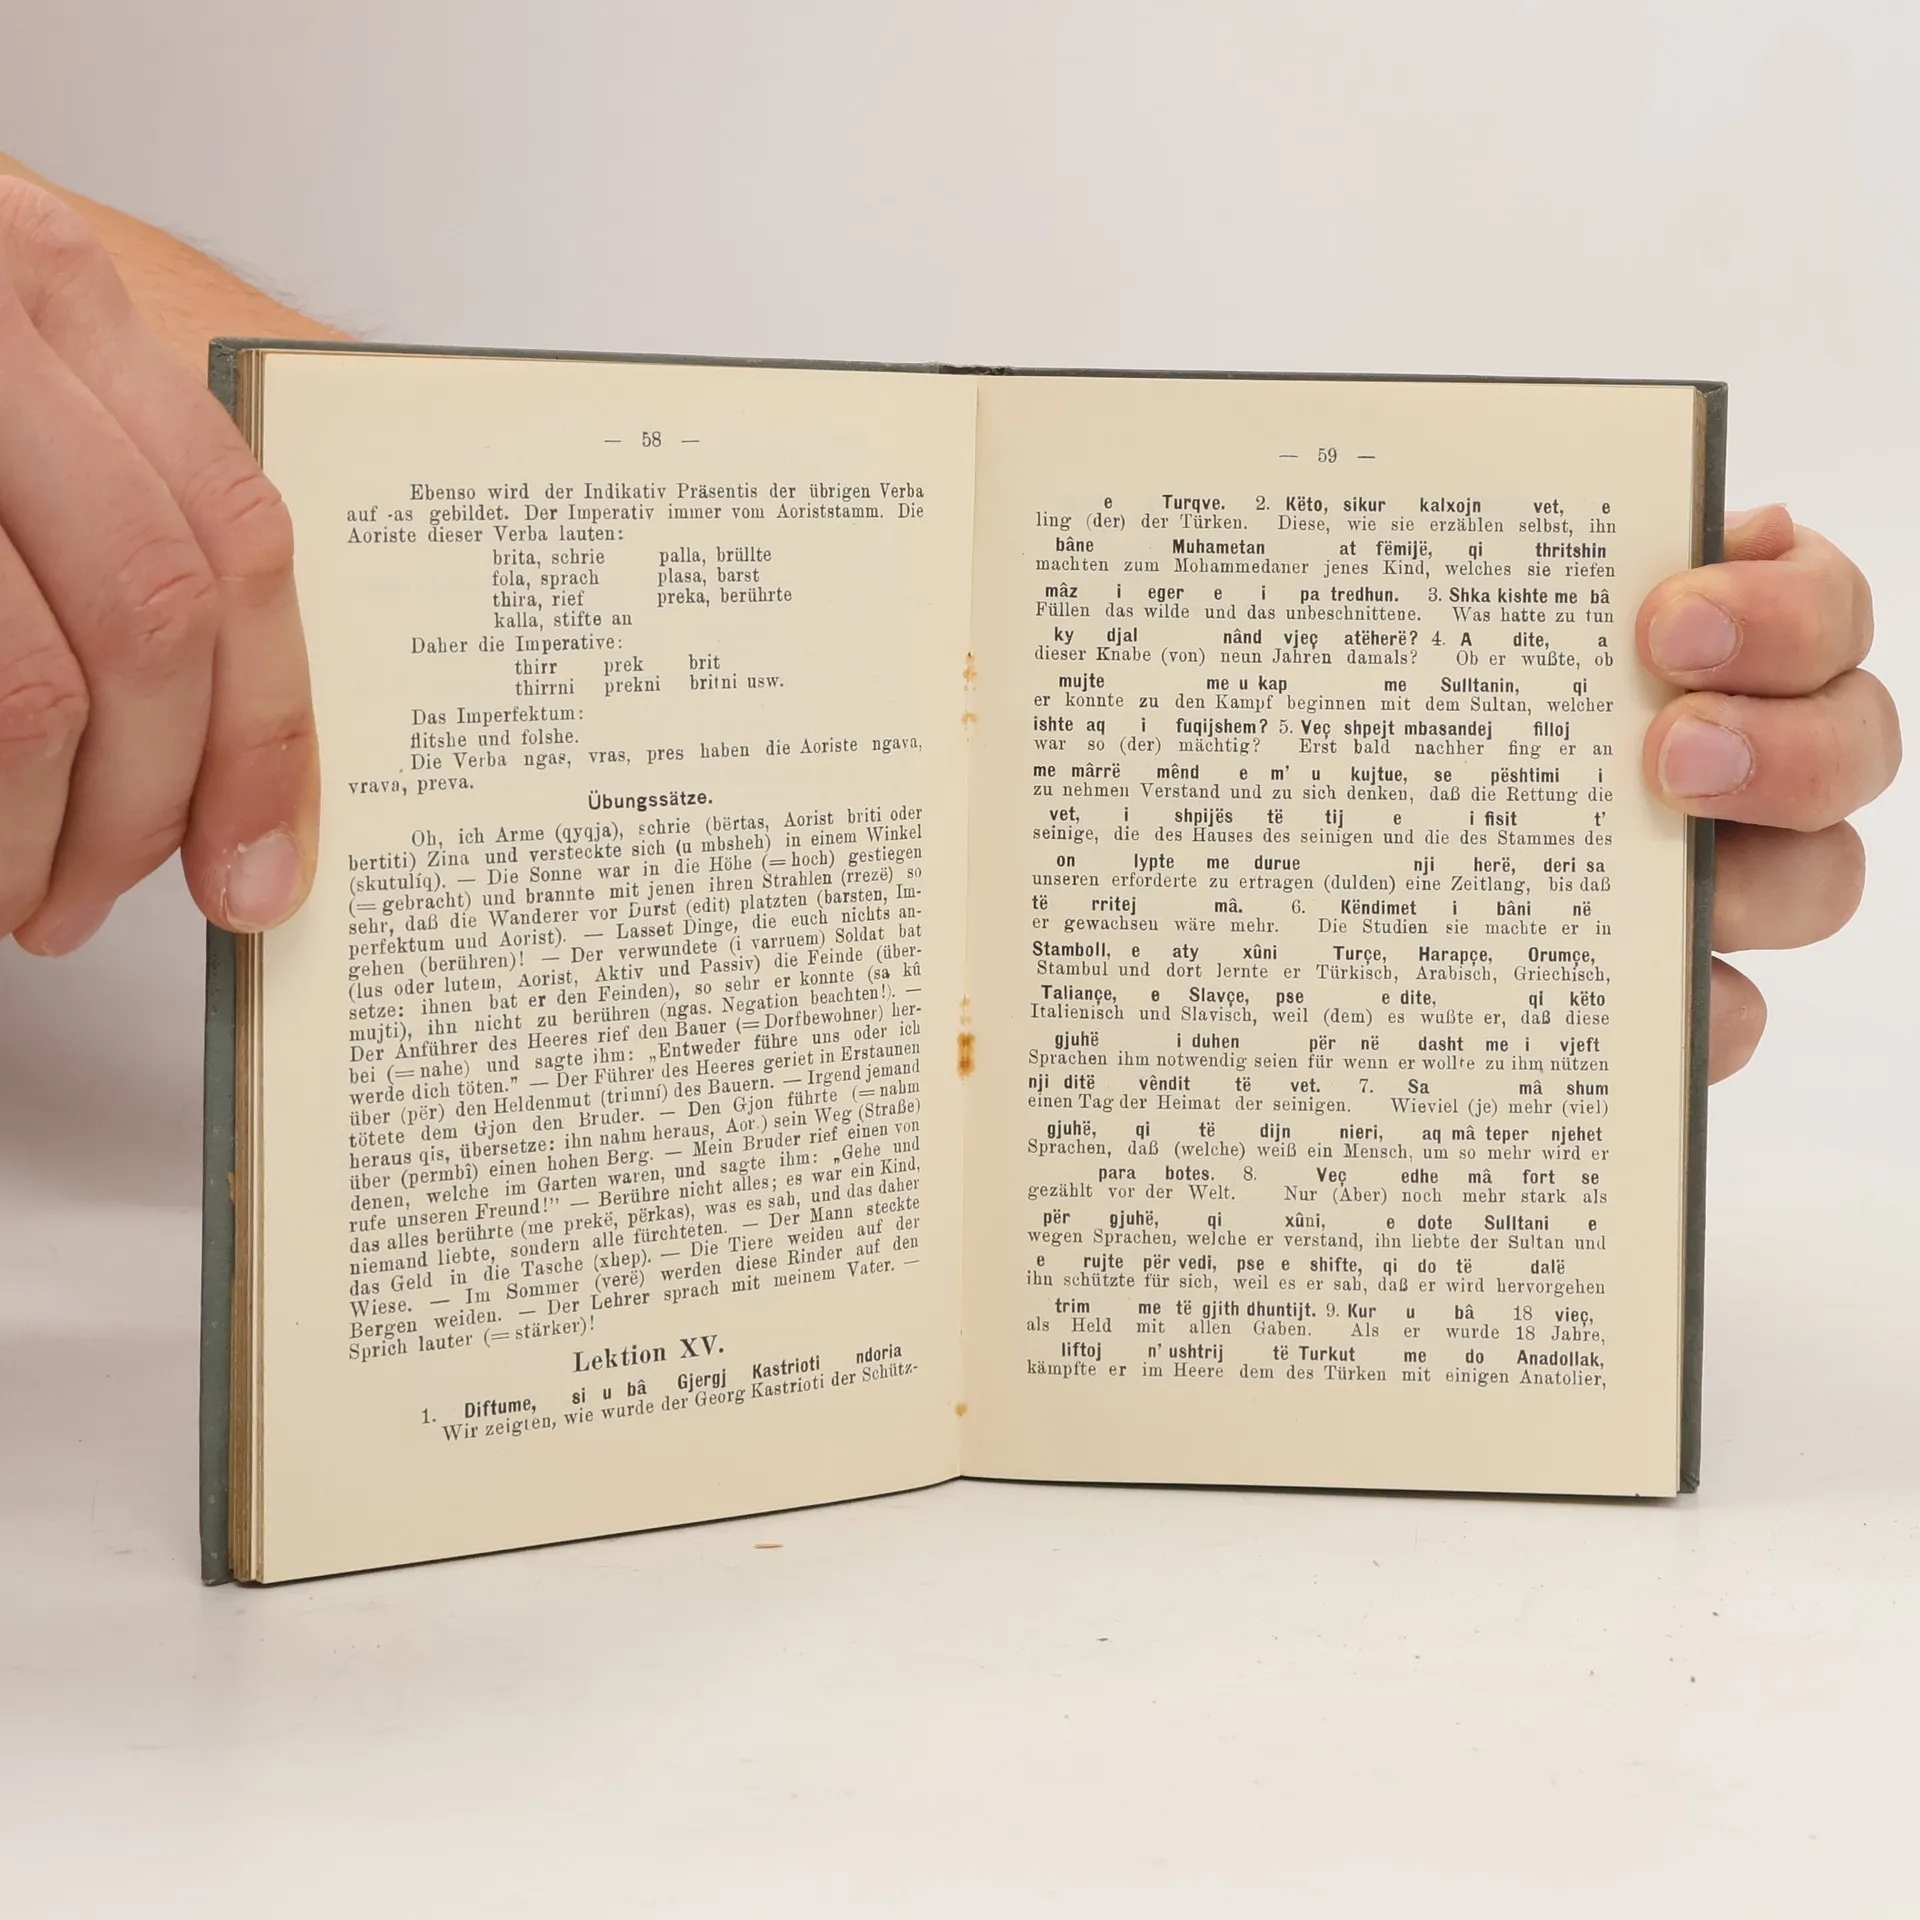 — 58 —
Ebenso wird der Indikativ Präsentis der übrigen Verba
auf -as gebildet. Der Imperativ immer vom Aoriststamm. Die
Aoriste dieser Verba lauten:
brita, schrie palla, brüllte
fola, sprach plasa, barst
thira, rief preka, berührte
kalla, stifte an
Daher die Imperative:
thirr prek brit
thirrni prekni britni usw.
Das Imperfektum:
flitshe und folshe.
Die Verba ngas, vras, pres haben die Aoriste ngava,
vrava, preva.
Übungssätze.
Oh, ich Arme (qyqja), schrie (bërtas, Aorist briti oder
bertiti) Zina und versteckte sich (u mbsheh) in einem Winkel
(skutulíq). — Die Sonne war in die Höhe (= hoch) gestiegen
(= gebracht) und brannte mit jenen ihren Strahlen (rrezë) so
sehr, daß die Wanderer vor Durst (edit) platzten (barsten, Im-
perfektum und Aorist). — Lasset Dinge, die euch nichts an-
gehen (berühren)! — Der verwundete (i varruem) Soldat bat
(lus oder lutem, Aorist, Aktiv und Passiv) die Feinde (über-
setze: ihnen bat er den Feinden), so sehr er konnte (sa kû
mujti), ihn nicht zu berühren (ngas. Negation beachten!). —
Der Anführer des Heeres rief den Bauer (= Dorfbewohner) her-
bei (= nahe) und sagte ihm: „Entweder führe uns oder ich
werde dich töten.” — Der Führer des Heeres geriet in Erstaunen
über (për) den Heldenmut (trimní) des Bauern. — Irgend jemand
tötete dem Gjon den Bruder. — Den Gjon führte (= nahm
heraus qis, übersetze: ihn nahm heraus, Aor.) sein Weg (Straße)
über (permbî) einen hohen Berg. — Mein Bruder rief einen von
denen, welche im Garten waren, und sagte ihm: „Gehe und
rufe unseren Freund!” — Berühre nicht alles; es war ein Kind,
das alles berührte (me prekë, përkas), was es sah, und das daher
niemand liebte, sondern alle fürchteten. — Der Mann steckte
das Geld in die Tasche (xhep). — Die Tiere weiden auf der
Wiese. — Im Sommer (verë) werden diese Rinder auf den
Bergen weiden. — Der Lehrer sprach mit meinem Vater. —
Sprich lauter (= stärker)!
Lektion XV.
1. Diftume, si u bâ Gjergj Kastrioti ndoria
Wir zeigten, wie wurde der Georg Kastrioti der Schütz-
— 59 —
e Turqve. 2. Këto, sikur kalxojn vet, e
ling (der) der Türken. Diese, wie sie erzählen selbst, ihn
bâne Muhametan at fëmijë, qi thritshin
machten zum Mohammedaner jenes Kind, welches sie riefen
mâz i eger e i pa tredhun. 3. Shka kishte me bâ
Füllen das wilde und das unbeschnittene. Was hatte zu tun
ky djal nând vjeç atëherë? 4. A dite, a
dieser Knabe (von) neun Jahren damals? Ob er wußte, ob
mujte me u kap me Sulltanin, qi
er konnte zu den Kampf beginnen mit dem Sultan, welcher
ishte aq i fuqijshem? 5. Veç shpejt mbasandej filloj
war so (der) mächtig? Erst bald nachher fing er an
me mârrë mênd e m' u kujtue, se pështimi i
zu nehmen Verstand und zu sich denken, daß die Rettung die
vet, i shpijës të tij e i fisit t'
seinige, die des Hauses des seinigen und die des Stammes des
on lypte me durue nji herë, deri sa
unseren erforderte zu ertragen (dulden) eine Zeitlang, bis daß
të rritej mâ. 6. Këndimet i bâni në
er gewachsen wäre mehr. Die Studien sie machte er in
Stamboll, e aty xûni Turçe, Harapçe, Orumçe,
Stambul und dort lernte er Türkisch, Arabisch, Griechisch,
Taliançe, e Slavçe, pse e dite, qi këto
Italienisch und Slavisch, weil (dem) es wußte er, daß diese
gjuhë i duhen për në dasht me i vjeft
Sprachen ihm notwendig seien für wenn er wollte zu ihm nützen
nji ditë vêndit të vet. 7. Sa mâ shum
einen Tag der Heimat der seinigen. Wieviel (je) mehr (viel)
gjuhë, qi të dijn nieri, aq mâ teper njehet
Sprachen, daß (welche) weiß ein Mensch, um so mehr wird er
para botes. 8. Veç edhe mâ fort se
gezählt vor der Welt. Nur (Aber) noch mehr stark als
për gjuhë, qi xûni, e dote Sulltani e
wegen Sprachen, welche er verstand, ihn liebte der Sultan und
e rujte për vedi, pse e shifte, qi do të dalë
ihn schützte für sich, weil es er sah, daß er wird hervorgehen
trim me të gjith dhuntijt. 9. Kur u bâ 18 vieç,
als Held mit allen Gaben. Als er wurde 18 Jahre,
liftoj n' ushtrij të Turkut me do Anadollak,
kämpfte er im Heere dem des Türken mit einigen Anatolier,